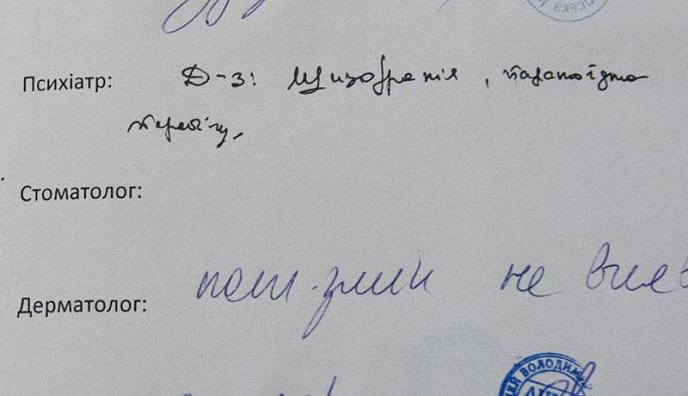 Психіатр: Д-з: Шизофренія, параноїдна
Стоматолог:
Дерматолог: пат. змін не вияв
ЕЙ ВОЛОДИМИ